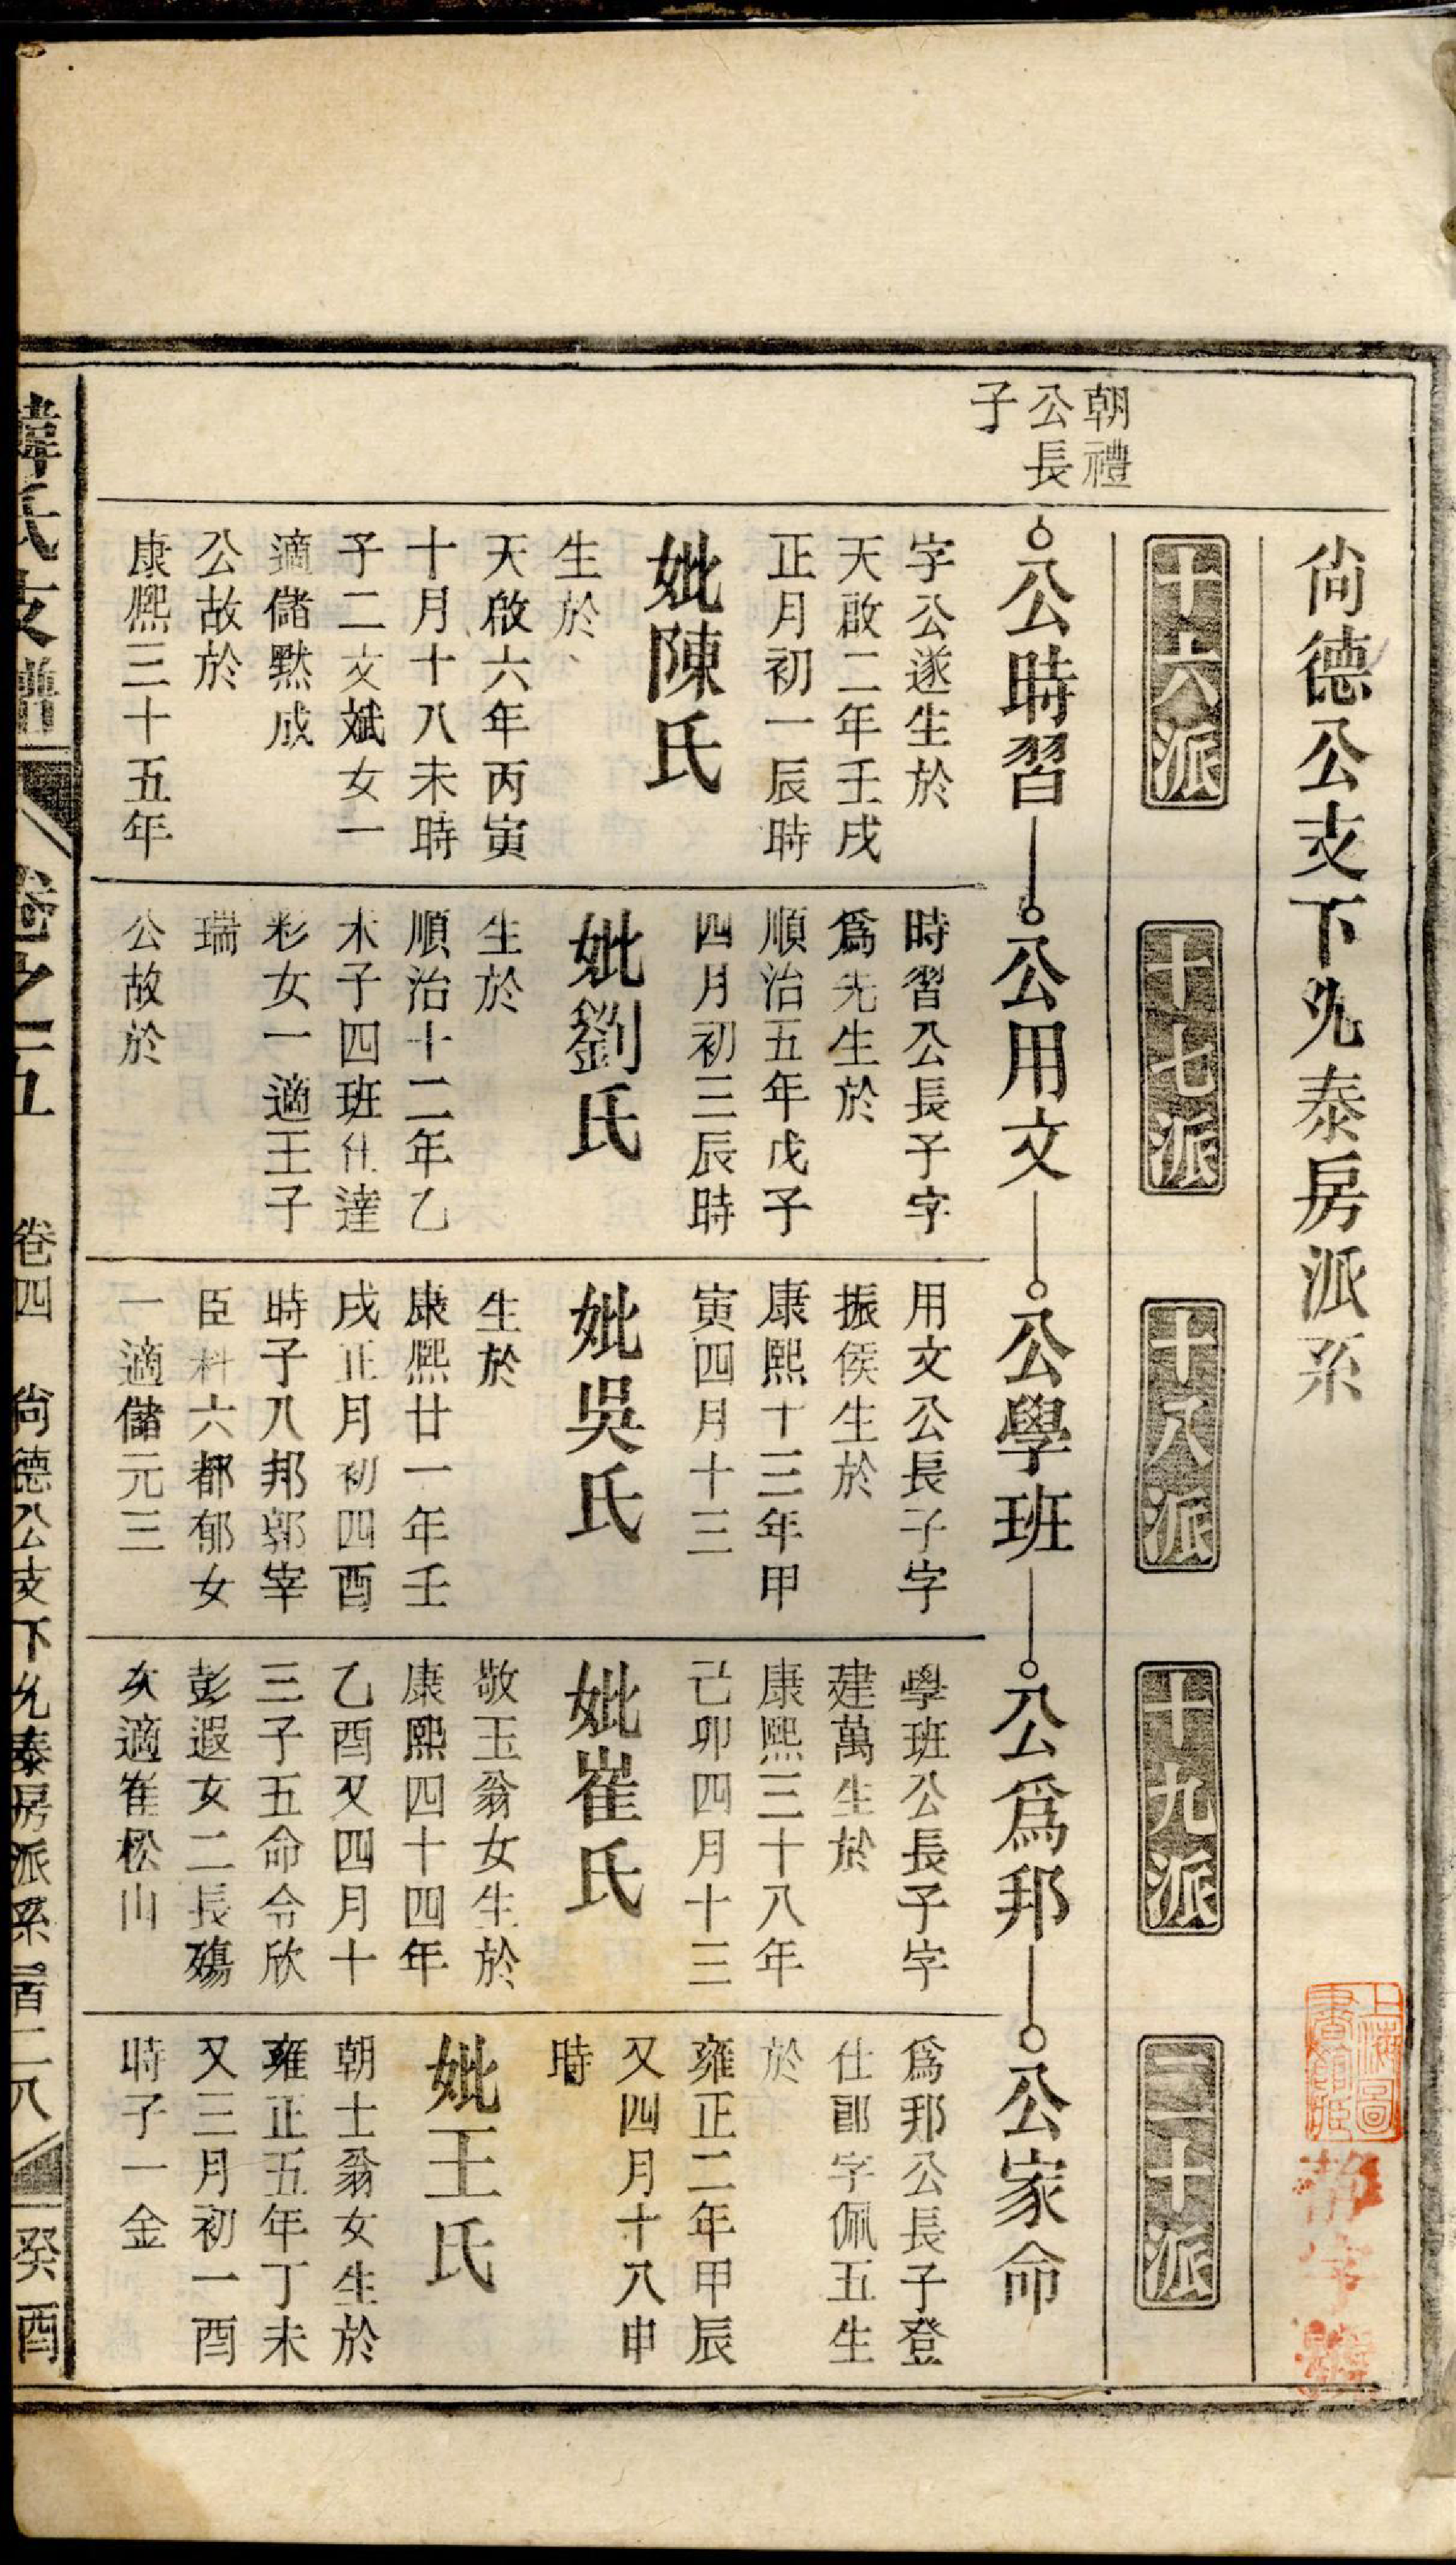 尙德公支下允泰房派系
十六派
十七派
十八派
十九派
二十派
朝禮
公長
子
公時習
字公遂生於
天啟二年壬戌
正月初一辰時
妣陳氏
生於
天啟六年丙寅
十月十八未時
子二文斌女一
適儲黙成
公故於
康熈三十五年
公用文
時習公長子字
爲先生於
順治五年戊子
四月初三辰時
妣劉氏
生於
順治十二年乙
未子四班仕達
彩女一適王子
瑞
公故於
公學班
用文公長子字
振侯生於
康熙十三年甲
寅四月十三
妣吳氏
生於
康熈廿一年壬
戌正月初四酉
時子八邦郭宰
臣科六都郁女
一適儲元三
公爲邦
學班公長子字
建萬生於
康熙三十八年
己卯四月十三
妣崔氏
敬玉翁女生於
康熙四十四年
乙酉又四月十
三子五命令欣
彭遐女二長殤
次適崔松山
公家命
爲邦公長子登
仕郎字佩五生
於
雍正二年甲辰
又四月十八申
時
妣王氏
朝士翁女生於
雍正五年丁未
又三月初一酉
時子一金
氏支譜
卷之五
卷四
尙德公支下允泰房派系
百二八
癸酉
上海圖
書館藏